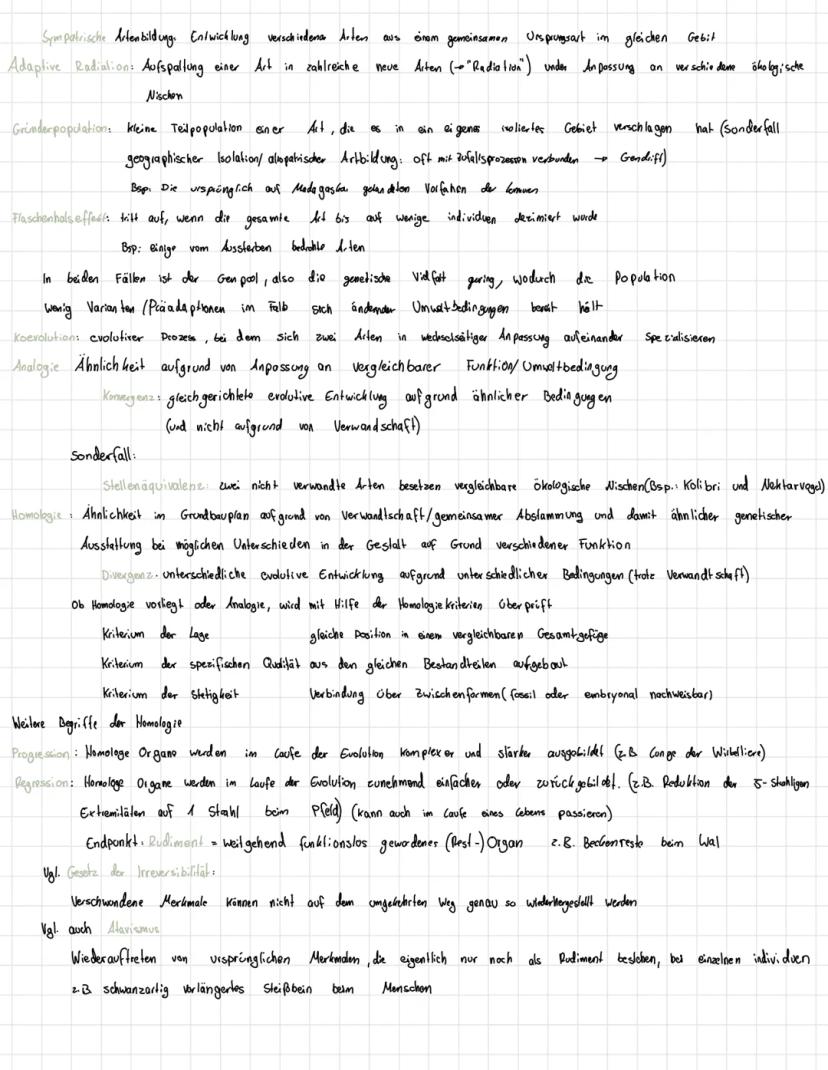 Sympatrische Artenbildung: Entwicklung verschiedener Arten aus einem gemeinsamen Ursprungsart im gleichen Gebit
Adaptive Radiation: Aufspaltung einer Art in zahlreiche neue Arten (→"Radiation") under Anpassung an verschiedene ökologische
Nischen
Gründerpopulation: kleine Teilpopulation einer Art, die es in ein eigenes isoliertes Gebiet verschlagen hat (Sonderfall
geographischer Isolation/ allopatrischer Artbildung: oft mit Zufallsprozessen verbunden → Gendrift)
Bsp: Die ursprünglich auf Madagaska gelandeten Vorfahren der Lemuren
Flaschenhalseffekt: tritt auf, wenn die gesamte Art bis auf wenige individuen dezimiert wurde
Bsp: einige vom Aussterben bedrohte Arten
In beiden Fällen ist der Genpool, also die genetische Vielfalt gering, wodurch die Population
wenig Varianten/Präadaptionen im Falle sich ändernder Umweltbedingungen bereit hält
Koevolution: evolutiver Prozess, bei dem sich zwei Arten in wechselseitiger Anpassung aufeinander spezialisieren
Analogie Ähnlichkeit aufgrund von Anpassung an vergleichbarer Funktion/Umweltbedingung
Konvergenz: gleichgerichtete evolutive Entwicklung aufgrund ähnlicher Bedingungen
(und nicht aufgrund von Verwandschaft)
Sonderfall:
Stellenäquivalenz: zwei nicht verwandte Arten besetzen vergleichbare ökologische Nischen(Bsp.: Kolibri und Nektarvogel)
Homologie: Ähnlichkeit im Grundbauplan aufgrund von Verwandtschaft/gemeinsamer Abstammung und damit ähnlicher genetischer
Ausstattung bei möglichen Unterschieden in der Gestalt auf Grund verschiedener Funktion
Divergenz: unterschiedliche evolutive Entwicklung aufgrund unterschiedlicher Bedingungen (trotz Verwandtschaft)
Ob Homologie vorliegt oder Analogie, wird mit Hilfe der Homologiekriterien überprüft
Kriterium der Lage gleiche Position in einem vergleichbaren Gesamtgefüge
Kriterium der spezifischen Qualität aus den gleichen Bestandteilen aufgebaut
Kriterium der Stetigkeit Verbindung über Zwischenformen (fossil oder embryonal nachweisbar)
Weitere Begriffe der Homologie
Progression: Homologe Organe werden im Laufe der Evolution komplexer und stärker ausgebildet (z.B. Lunge der Wirbeltiere)
Regression: Homologe Organe werden im Laufe der Evolution zunehmend einfacher oder zurückgebildet. (z.B. Reduktion der 5-Strahligen
Extremitäten auf 1 Strahl beim Pferd) (kann auch im Laufe eines Lebens passieren)
Endpunkt: Rudiment = weitgehend funktionslos gewordenes (Rest-)Organ z.B. Beckenreste beim Wal
Vgl. Gesetz der Irreversibilität:
Verschwundene Merkmale können nicht auf dem umgekehrten Weg genau so wiederhergestellt werden
Vgl. auch Atavismus
Wiederauftreten von ursprünglichen Merkmalen, die eigentlich nur noch als Rudiment bestehen, bei einzelnen individuen
z.B. schwanzartig verlängertes Steißbein beim Menschen